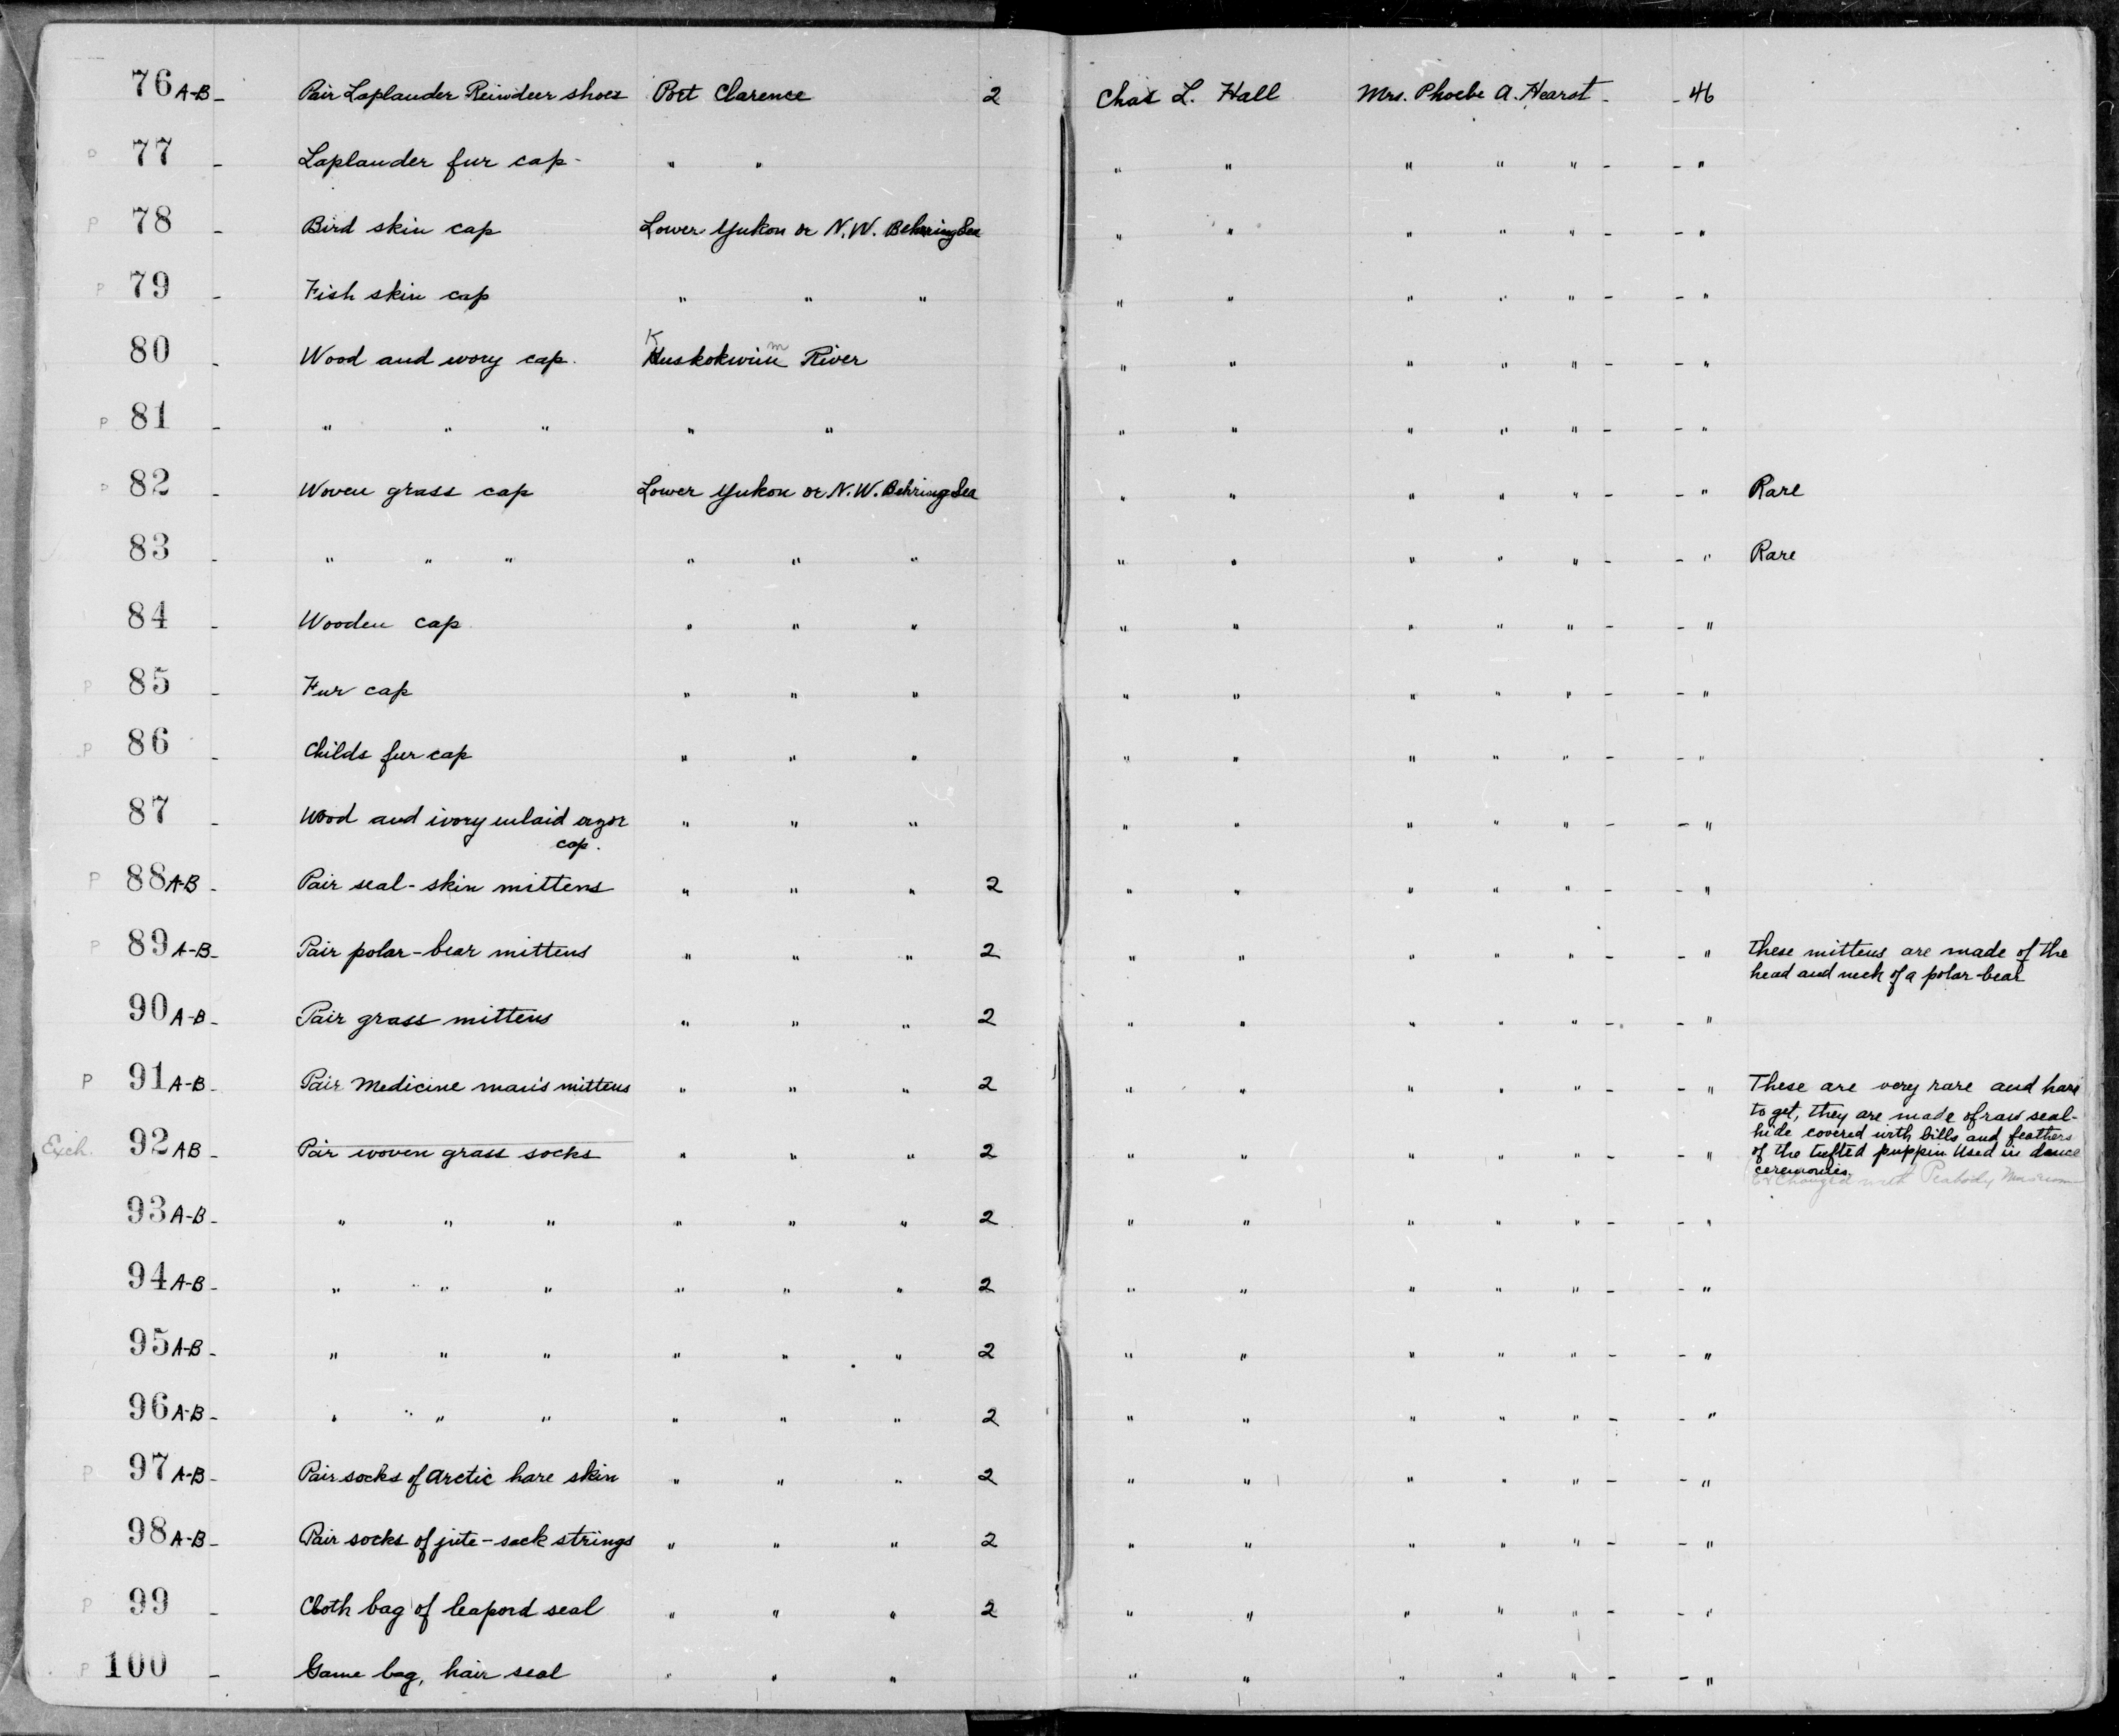 76 A-B - Pair Laplander Reindeer shoes Port Clarence 2 Chas L. Hall Mrs. Phoebe A. Hearst - - 46
77 - Laplander fur cap - " " " " " " " - - "
P 78 - Bird skin cap Lower Yukon or N.W. Behring Sea " " " " " - - "
P 79 - Fish skin cap " " " " " " " " - - "
80 - Wood and ivory cap. Kuskokwim River " " " " " - - "
P 81 - " " " " " " " " " " - - "
82 - Woven grass cap Lower Yukon or N.W. Behring Sea " " " " " - - " Rare
83 - " " " " " " " " " " " - - " Rare
84 - Wooden cap " " " " " " " " - - "
P 85 - Fur cap " " " " " " " " - - "
P 86 - Childs fur cap " " " " " " " " - - "
87 - Wood and ivory inlaid " " " " " " " " - - "
cap.
P 88 A-B - Pair seal-skin mittens " " " 2 " " " " " - - "
P 89 A-B - Pair polar-bear mittens " " " 2 " " " " " - - " These mittens are made of the
head and neck of a polar-bear
90 A-B - Pair grass mittens " " " 2 " " " " " - - "
P 91 A-B - Pair Medicine man's mittens " " " 2 " " " " " - - " These are very rare and hard
to get, they are made of raw seal-
hide covered with bills and feathers
Exch. 92 AB - Pair woven grass socks " " " 2 " " " " " - - " of the tufted puppin Used in dance
ceremonies.
Exchanged with Peabody Museum
93 A-B - " " " " " " 2 " " " " " - - "
94 A-B - " " " " " " 2 " " " " " - - "
95 A-B - " " " " " " 2 " " " " " - - "
96 A-B - " " " " " " 2 " " " " " - - "
P 97 A-B - Pair socks of Arctic hare skin " " " 2 " " " " " - - "
98 A-B - Pair socks of jute-sack strings " " " 2 " " " " " - - "
P 99 - Cloth bag of leapord seal " " " 2 " " " " " - - "
P 100 - Game bag, hair seal " " " " " " " " - - "